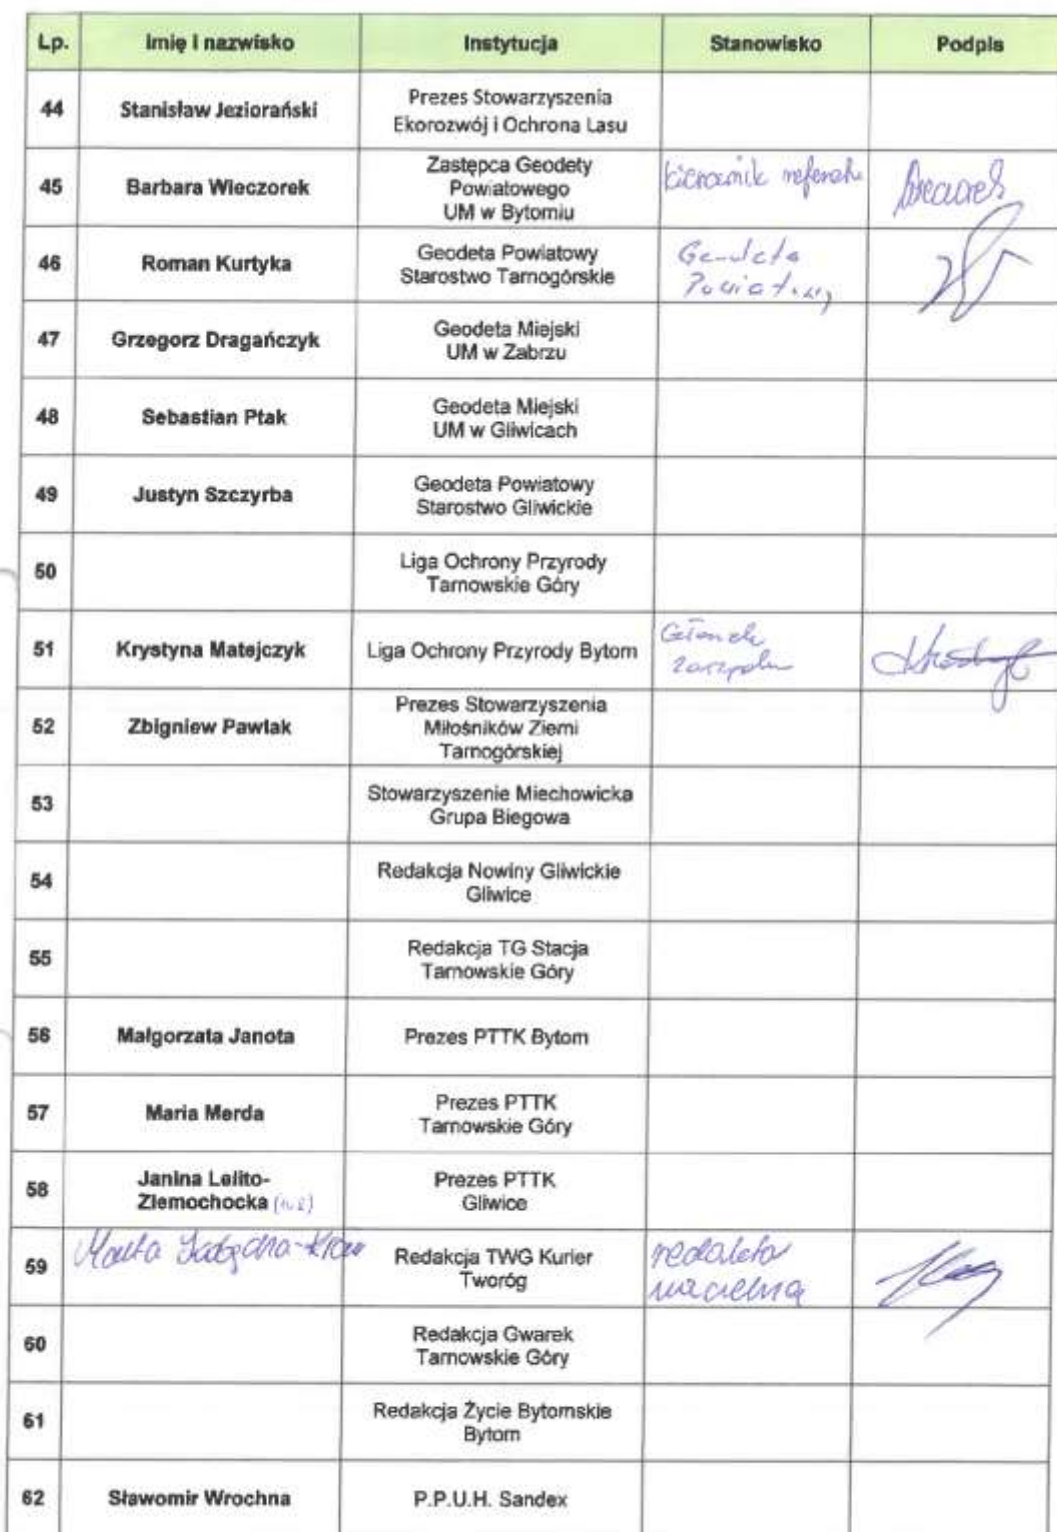 Lp. Imię i nazwisko Instytucja Stanowisko Podpis
44 Stanisław Jeziorański Prezes Stowarzyszenia
Ekorozwój i Ochrona Lasu
45 Barbara Wieczorek Zastępca Geodety
Powiatowego
UM w Bytomiu
kierownik referatu
46 Roman Kurtyka Geodeta Powiatowy
Starostwo Tarnogórskie
Geodeta
Powiatowy
47 Grzegorz Dragańczyk Geodeta Miejski
UM w Zabrzu
48 Sebastian Ptak Geodeta Miejski
UM w Gliwicach
49 Justyn Szczyrba Geodeta Powiatowy
Starostwo Gliwickie
50 Liga Ochrony Przyrody
Tarnowskie Góry
51 Krystyna Matejczyk Liga Ochrony Przyrody Bytom
52 Zbigniew Pawlak Prezes Stowarzyszenia
Miłośników Ziemi
Tarnogórskiej
53 Stowarzyszenie Miechowicka
Grupa Biegowa
54 Redakcja Nowiny Gliwickie
Gliwice
55 Redakcja TG Stacja
Tarnowskie Góry
56 Małgorzata Janota Prezes PTTK Bytom
57 Maria Merda Prezes PTTK
Tarnowskie Góry
58 Janina Lelito-
Ziemochocka
Prezes PTTK
Gliwice
59 Redakcja TWG Kurier
Tworóg
60 Redakcja Gwarek
Tarnowskie Góry
61 Redakcja Życie Bytomskie
Bytom
62 Sławomir Wrochna P.P.U.H. Sandex